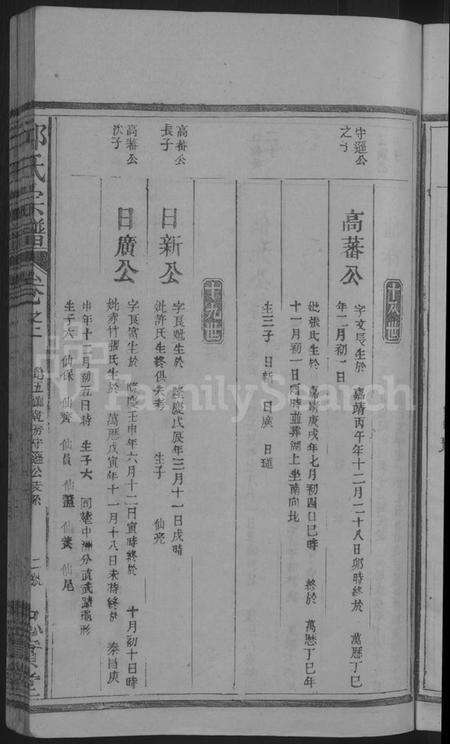 十八世
守遜公
之子
高蕃公
字文辰生於 嘉靖丙午年十二月二十八日卯時終於 萬曆丁巳
年二月初一日
妣張氏生於 嘉靖庚戌年七月初四日巳時 終於 萬曆丁巳年
十一月初一日酉時並葬湖上坐南向北
生三子 日新 日廣 日
十九世
高蕃公
長子
日新公
字良 生於 隆慶戊辰年三月十一日戌時
妣許氏生終俱失考 生子 仙亮
高蕃公
次子
日廣公
字良 生於 隆慶壬申年六月十二日寅時終於 十月初十日時
妣 竹 氏生於 萬曆戊寅年十一月十八日未時終於 泰昌庚
申年十一月初五日時 生子六 同葬中洲分
生子六 仙保 仙 仙員 仙 仙 仙尾
氏宗譜
卷之
守遜公支系
FamilySearch